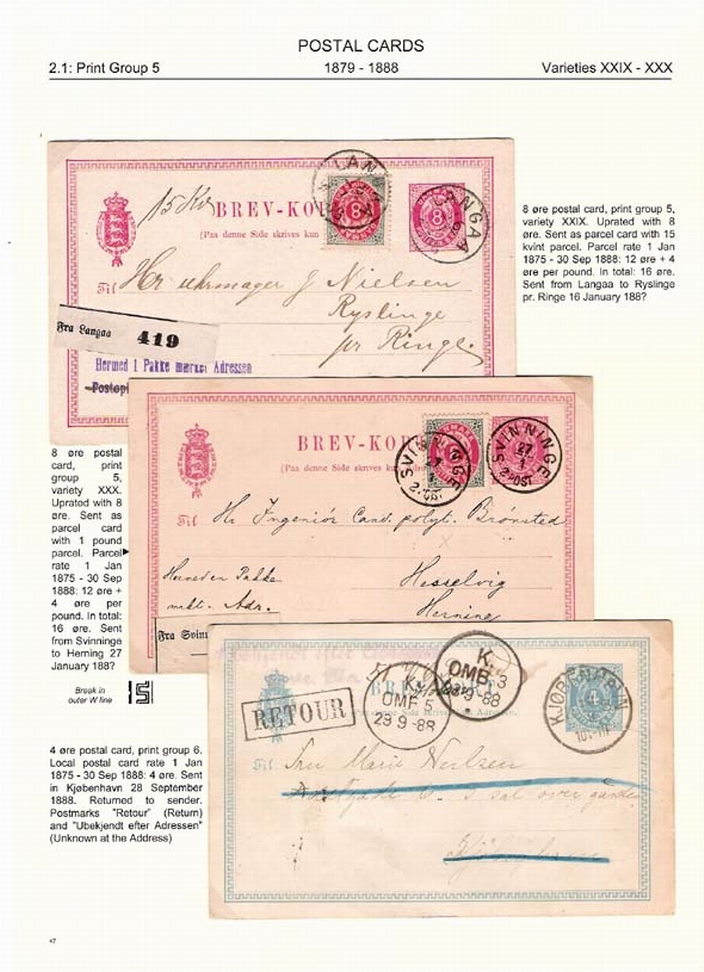 POSTAL CARDS
2.1: Print Group 5 1879 - 1888 Varieties XXIX - XXX
15 Kv
BREV-KO
(Paa denne Side skrives kun
LANGAA
8
Til Hr uhrmager J Nielsen
Ryslinge
pr Ringe.
Fra Langaa 419
Hermed 1 Pakke mærket Adressen
8 øre postal card, print group 5,
variety XXIX. Uprated with 8
øre. Sent as parcel card with 15
kvint parcel. Parcel rate 1 Jan
1875 - 30 Sep 1888: 12 øre + 4
øre per pound. In total: 16 øre.
Sent from Langaa to Ryslinge
pr. Ringe 16 January 188?
BREV-KO
(Paa denne Side skrives
SVINNINGE
2 POST
SVINNINGE
27
1
2 POST
Til Hr Ingeniør Cand. polyt. Brønsted
Hermed en Pakke
mrkt. Adr.
Hesselvig
Herning
Fra Svinn
8 øre postal
card, print
group 5,
variety XXX.
Uprated with 8
øre. Sent as
parcel card
with 1 pound
parcel. Parcel
rate 1 Jan
1875 - 30 Sep
1888: 12 øre +
4 øre per
pound. In total:
16 øre. Sent
from Svinninge
to Herning 27
January 188?
Break in
outer W line
RETOUR
K.
OMF 5
29 9 -88
K.
OMB. 3
9-88
KJØBENHAVN
4
Til Fru Marie Neelsen
4 øre postal card, print group 6.
Local postal card rate 1 Jan
1875 - 30 Sep 1888: 4 øre. Sent
in Kjøbenhavn 28 September
1888. Returned to sender.
Postmarks "Retour" (Return)
and "Ubekjendt efter Adressen"
(Unknown at the Address)
47